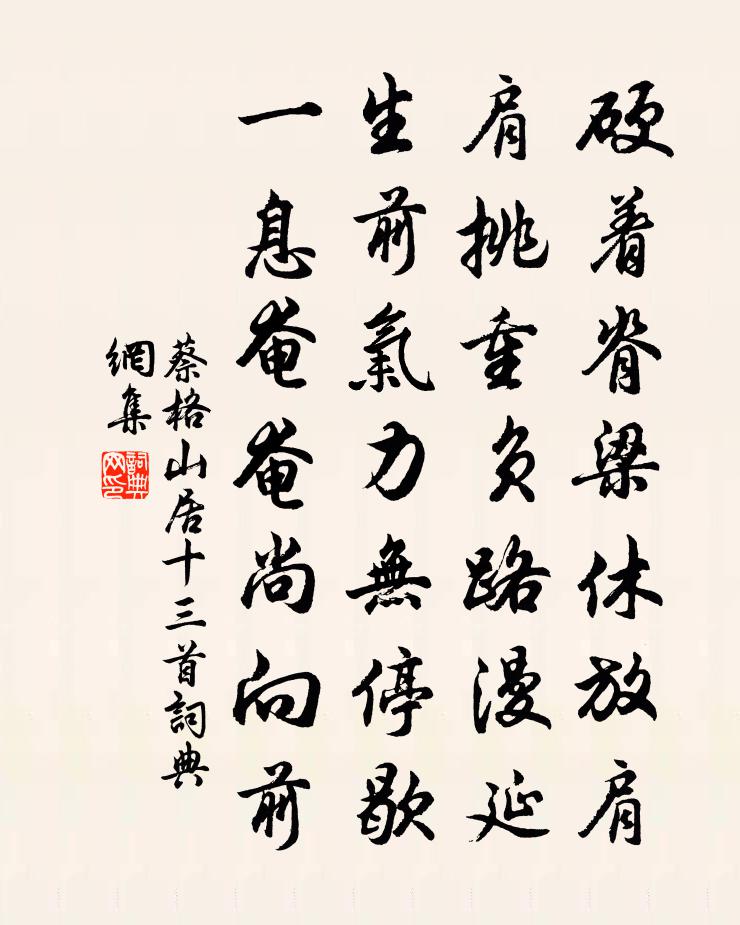 硬着脊梁休放肩
肩挑重負路漫延
生前氣力無停歇
一息奄奄尚向前
蔡格山居十三首詞典
網集
詞典
网印